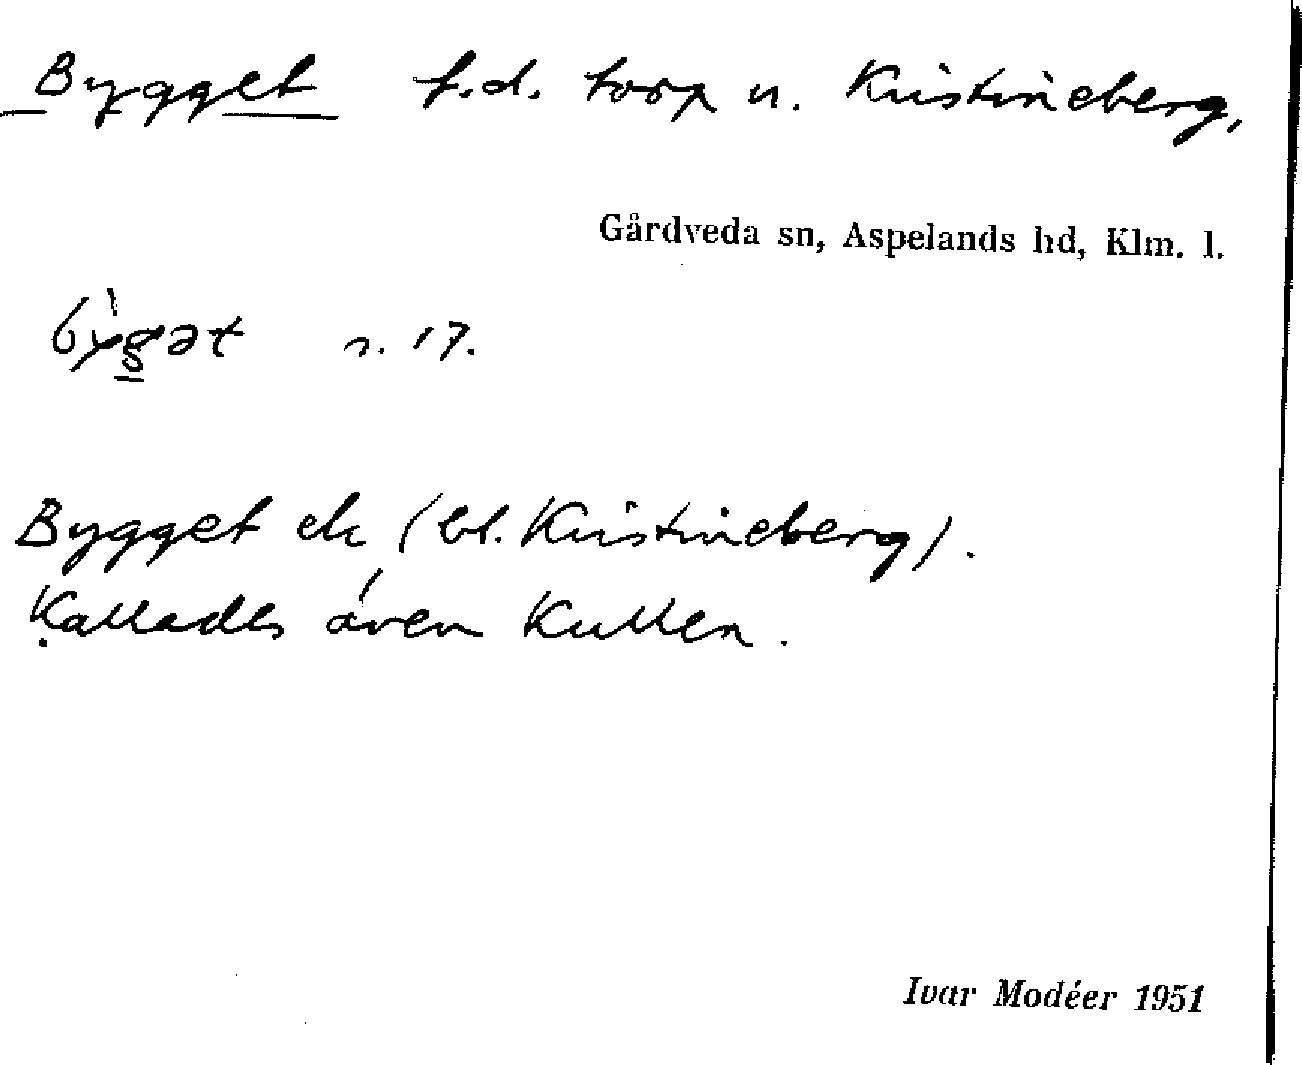 Bygget f.d. torp u. Kristineberg,
Gårdveda sn, Aspelands hd, Klm. l.
bỳg̳ət s. 17.
Bygget ek (bl. Kristineberg).
Kallades även Kullen.
Ivar Modéer 1951